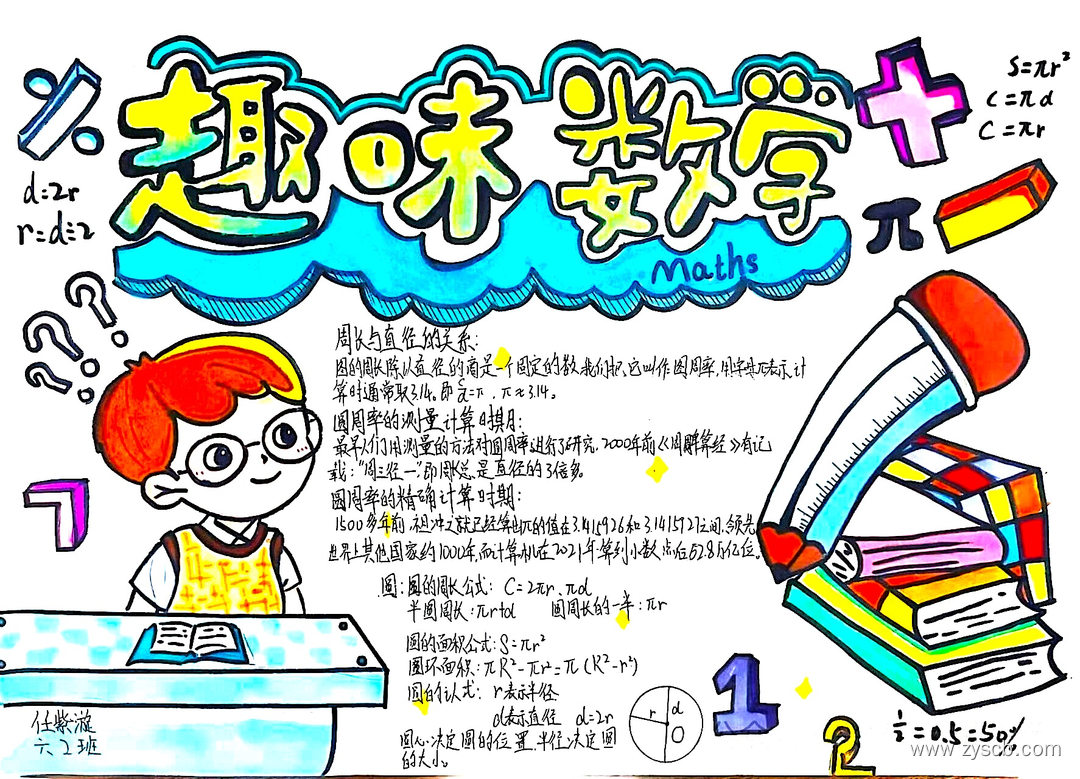 趣味数学
Maths
S=πr²
C=πd
C=πr
d=2r
r=d÷2
π
周长与直径的关系:
圆的周长除以直径的商是一个固定的数,我们把它叫作圆周率,用字母π表示,计
算时通常取3.14。即 =π,π≈3.14。
圆周率的测量计算时期:
最早人们用测量的方法对圆周率进行了研究,2000年前《周髀算经》有记
载:"周三径一",即周长总是直径的3倍多。
圆周率的精确计算时期:
1500多年前,祖冲之就已经算出π的值在3.1415926和3.1415927之间,领先
世界上其他国家约1000年,而计算机在2021年算到小数点后62.8万亿位。
圆:圆的周长公式:C=2πr、πd
半圆周长:πr+d 圆周长的一半:πr
圆的面积公式:S=πr²
圆环面积:πR²-πr²=π(R²-r²)
圆的 认式:r表示半径
d表示直径 d=2r
圆心决定圆的位置,半径决定圆
的大小。
r
d
O
7
1
2
任紫漩
六2班
½=0.5=50%
www.zyscb.com